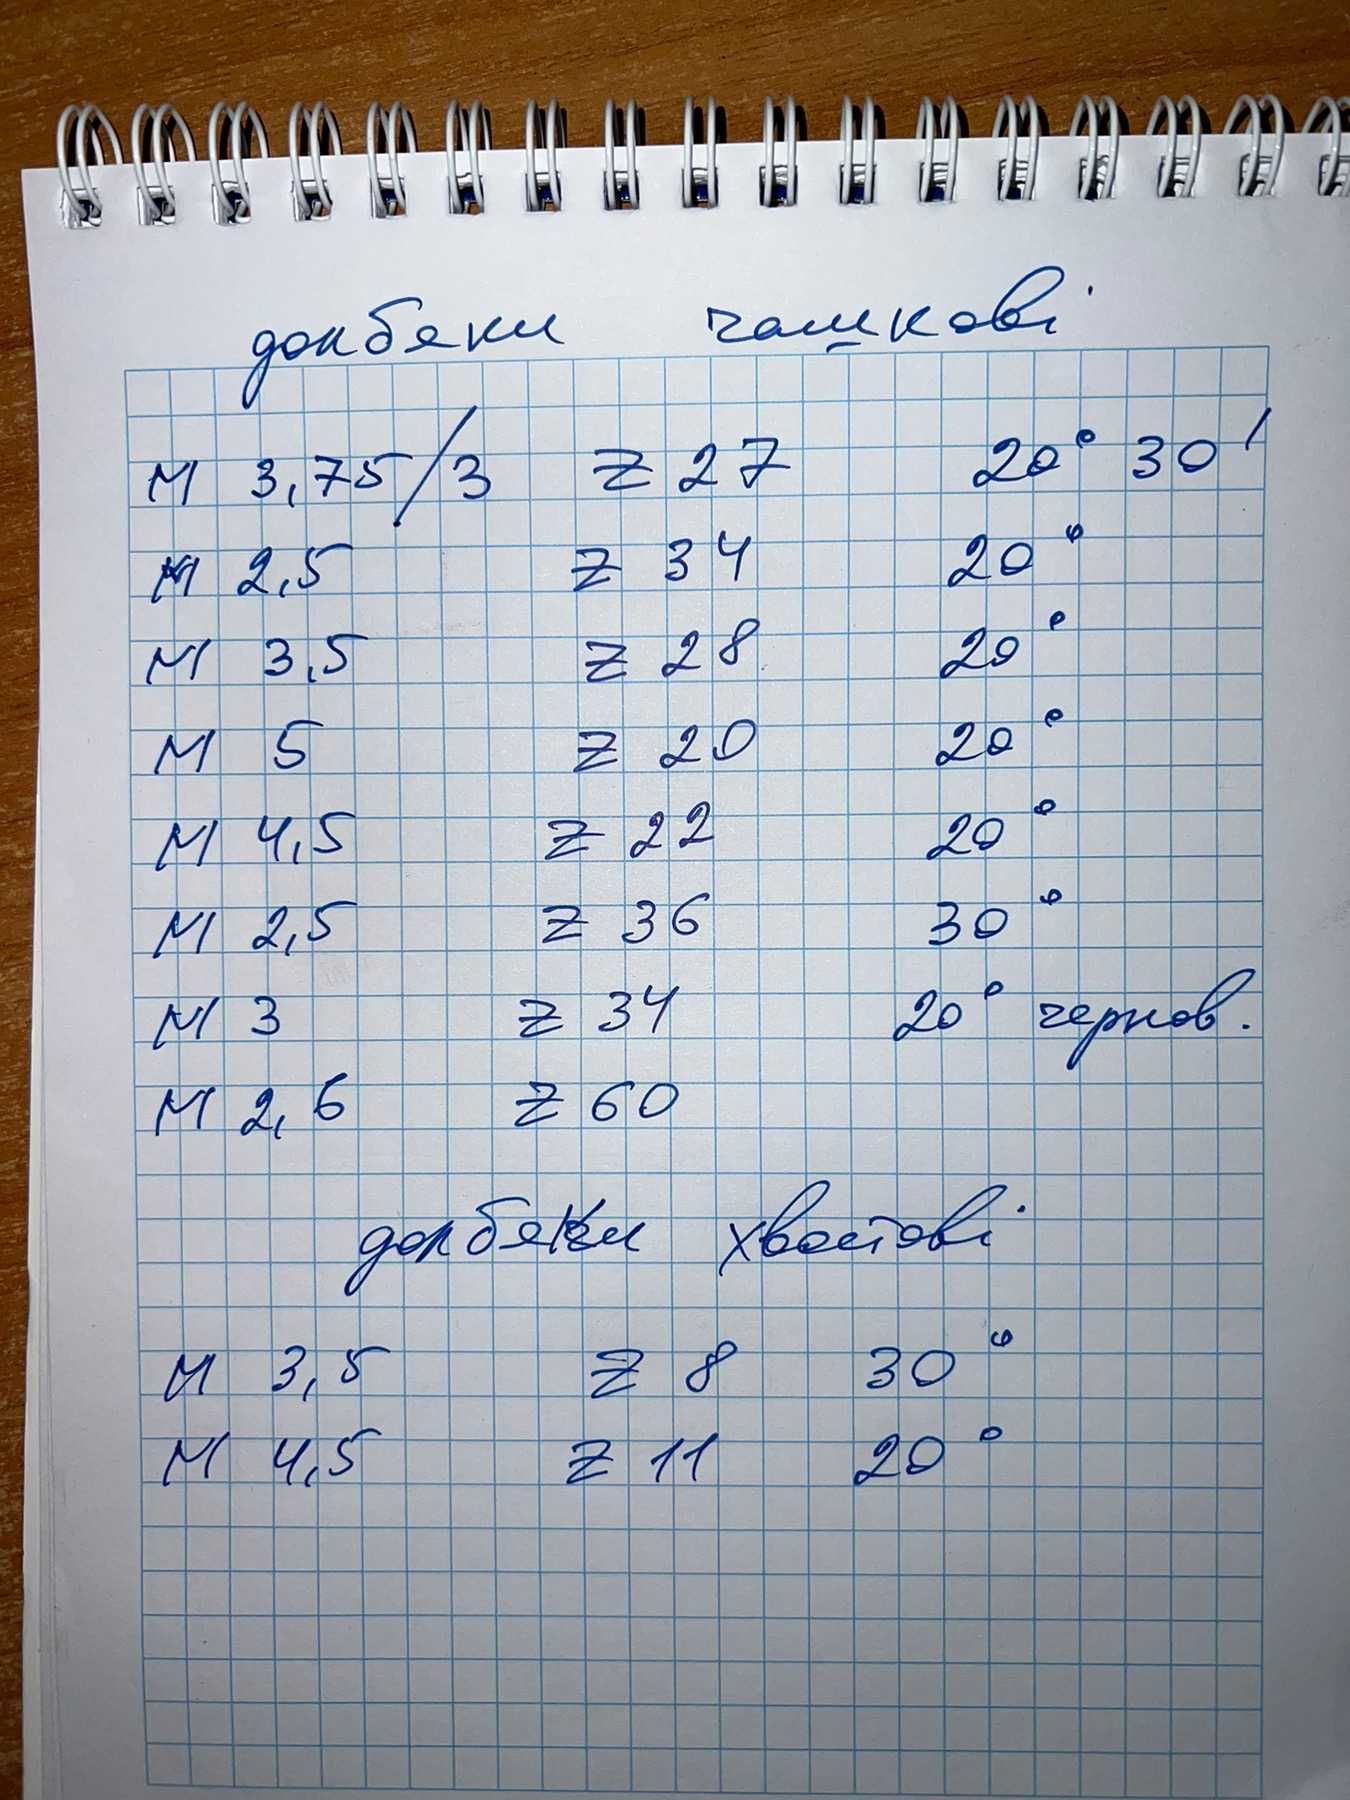 довбяки чашкові
М 3,75/3 Z 27 20° 30'
М 2,5 Z 34 20°
М 3,5 Z 28 20°
М 5 Z 20 20°
М 4,5 Z 22 20°
М 2,5 Z 36 30°
М 3 Z 34 20° чернов.
М 2,6 Z 60
довбяки хвостові
М 3,5 Z 8 30°
М 4,5 Z 11 20°